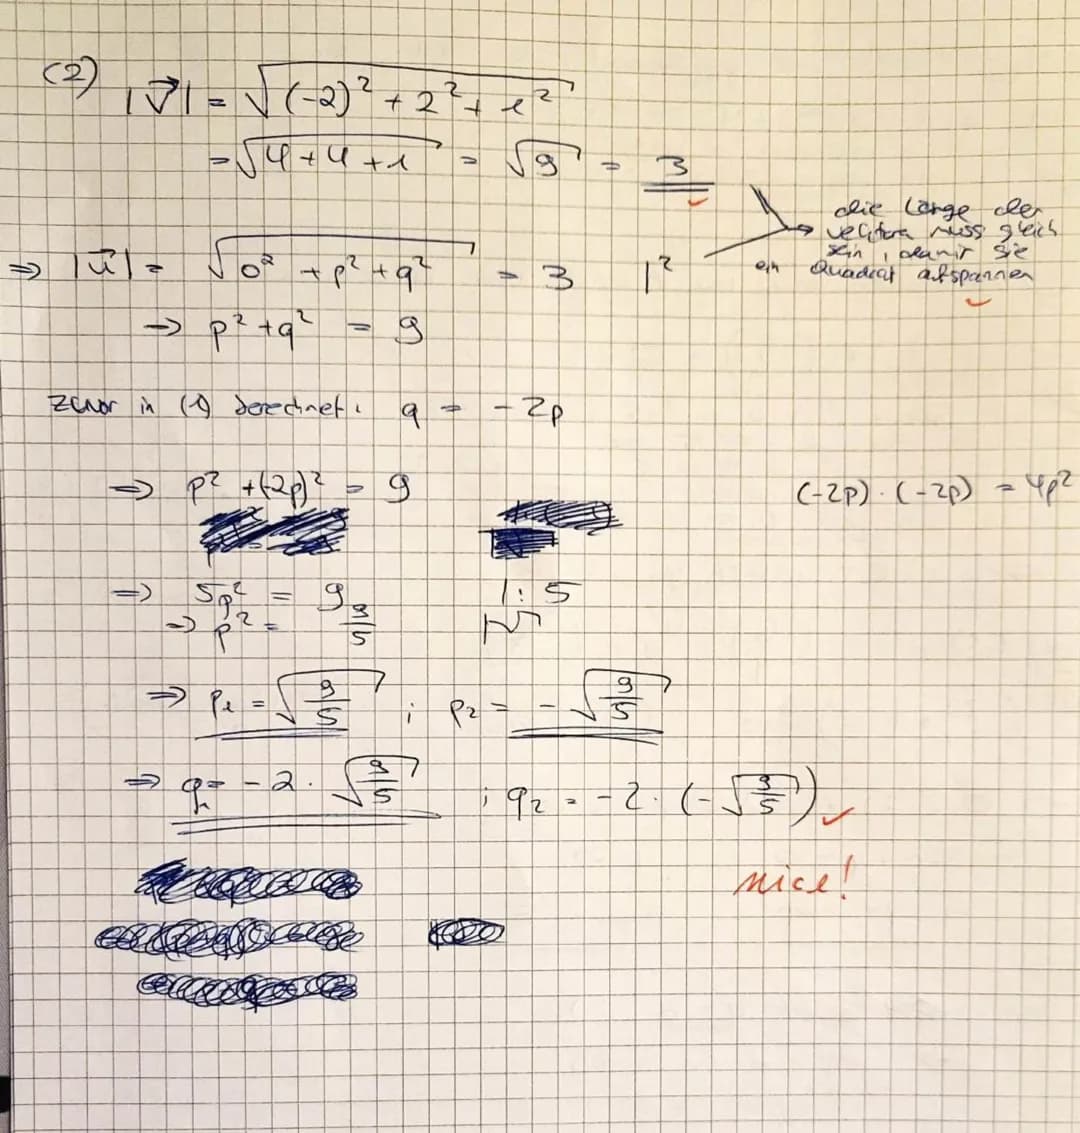 (2) |v⃗| = √((-2)² + 2² + 1²)
= √(4+4+1) = √9 = 3
die Länge der
Vektoren muss gleich
sein, damit sie
ein Quadrat aufspannen
⇒ |u⃗| = √(0² + p² + q²) = 3 |²
⇒ p² + q² = 9
zuvor in (1) berechnet: q = -2p
⇒ p² + (-2p)² = 9 (-2p) · (-2p) = 4p²
⇒ 5p² = 9 |: 5
⇒ p² = 9/5 |√
⇒ p₁ = √(9/5) ; p₂ = -√(9/5)
⇒ q₁ = -2 · √(9/5) ; q₂ = -2 · (-√(9/5))
nice!